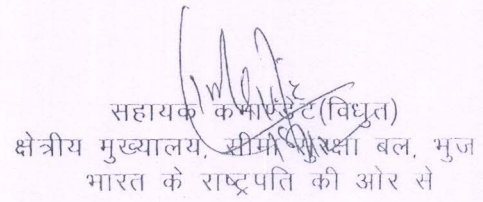 सहायक कमाण्डेंट(विधुत)
क्षेत्रीय मुख्यालय, सीमा सुरक्षा बल, भुज
भारत के राष्ट्रपति की ओर से